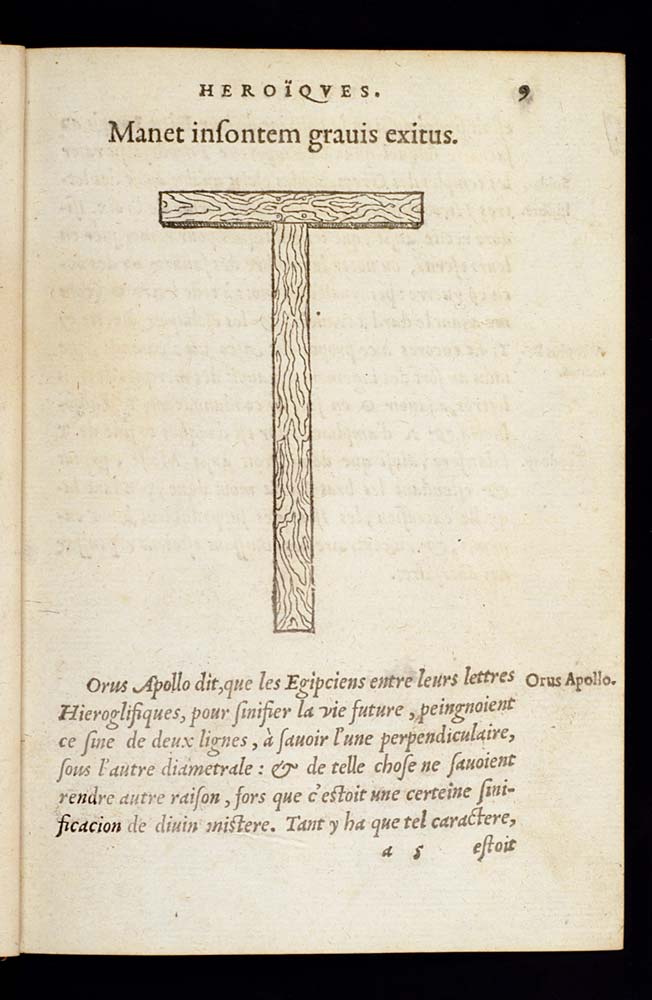 HEROÏQVES. 9
Manet inſontem grauis exitus.
Orus Apollo dit, que les Egipciens entre leurs lettres
Orus Apollo.
Hieroglifiques, pour ſinifier la vie future, peingnoient
ce ſine de deux lignes, à ſauoir l'une perpendiculaire,
ſous l'autre diametrale: & de telle choſe ne ſauoient
rendre autre raiſon, fors que c'eſtoit une certeine ſini-
ficacion de diuin miſtere. Tant y ha que tel caractere,
a 5 eſtoit